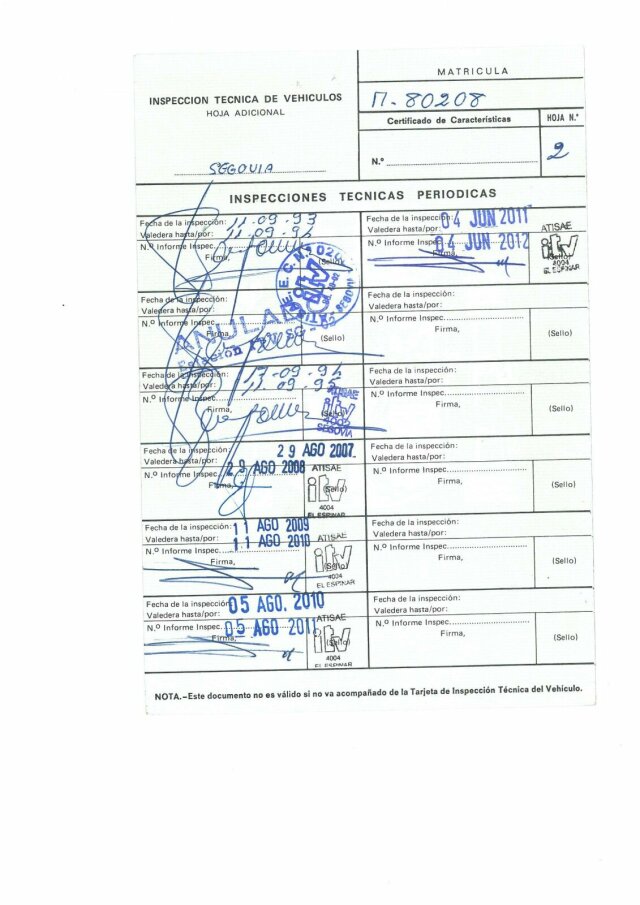 MATRICULA
INSPECCION TECNICA DE VEHICULOS
HOJA ADICIONAL
80208
Certificado de Características
HOJA N.º
SEGOVIA
N.º
2
INSPECCIONES TECNICAS PERIODICAS
Fecha de la inspección: 11.09.93
Valedera hasta/por: 11.09.94
N.º Informe Inspec.
Firma,
(Sello)
Fecha de la inspección: 04 JUN 2011
Valedera hasta/por:
N.º Informe Inspec. 04 JUN 2012
Firma,
ATISAE
itv
(Sello)
4004
EL ESPINAR
Fecha de la inspección:
Valedera hasta/por:
N.º Informe Inspec.
Firma,
(Sello)
ANULADO
Fecha de la inspección:
Valedera hasta/por:
N.º Informe Inspec.
Firma,
(Sello)
Fecha de la inspección: 09.94
Valedera hasta/por: 11.09.95
N.º Informe Inspec.
Firma,
ATISAE
itv
4002
SEGOVIA
Fecha de la inspección:
Valedera hasta/por:
N.º Informe Inspec.
Firma,
(Sello)
Fecha de la inspección: 29 AGO 2007
Valedera hasta/por:
N.º Informe Inspec. 29 AGO 2008
Firma,
ATISAE
itv
(Sello)
4004
EL ESPINAR
Fecha de la inspección:
Valedera hasta/por:
N.º Informe Inspec.
Firma,
(Sello)
Fecha de la inspección: 11 AGO 2009
Valedera hasta/por: 11 AGO 2010
N.º Informe Inspec.
Firma,
ATISAE
itv
(Sello)
4004
EL ESPINAR
Fecha de la inspección:
Valedera hasta/por:
N.º Informe Inspec.
Firma,
(Sello)
Fecha de la inspección 05 AGO. 2010
Valedera hasta/por:
N.º Informe Inspec. 05 AGO 2011
Firma,
ATISAE
itv
(Sello)
4004
EL ESPINAR
Fecha de la inspección:
Valedera hasta/por:
N.º Informe Inspec.
Firma,
(Sello)
NOTA.-Este documento no es válido si no va acompañado de la Tarjeta de Inspección Técnica del Vehículo.